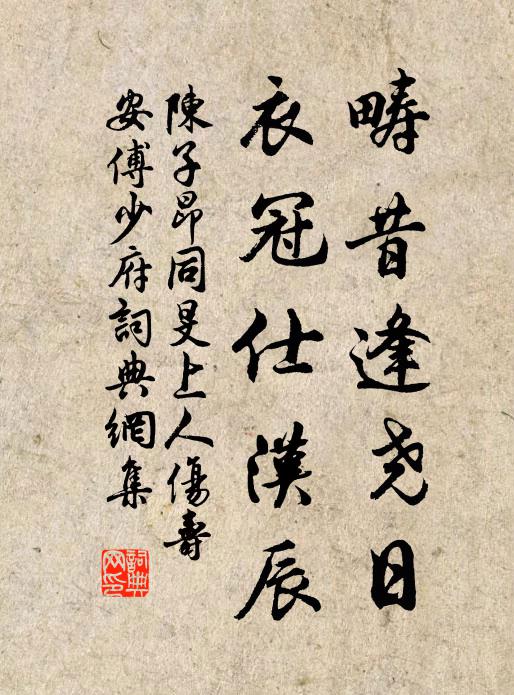 疇昔逢尧日
衣冠仕漢辰
陳子昂同旻上人傷壽
安傅少府詞典網集
詞典网印